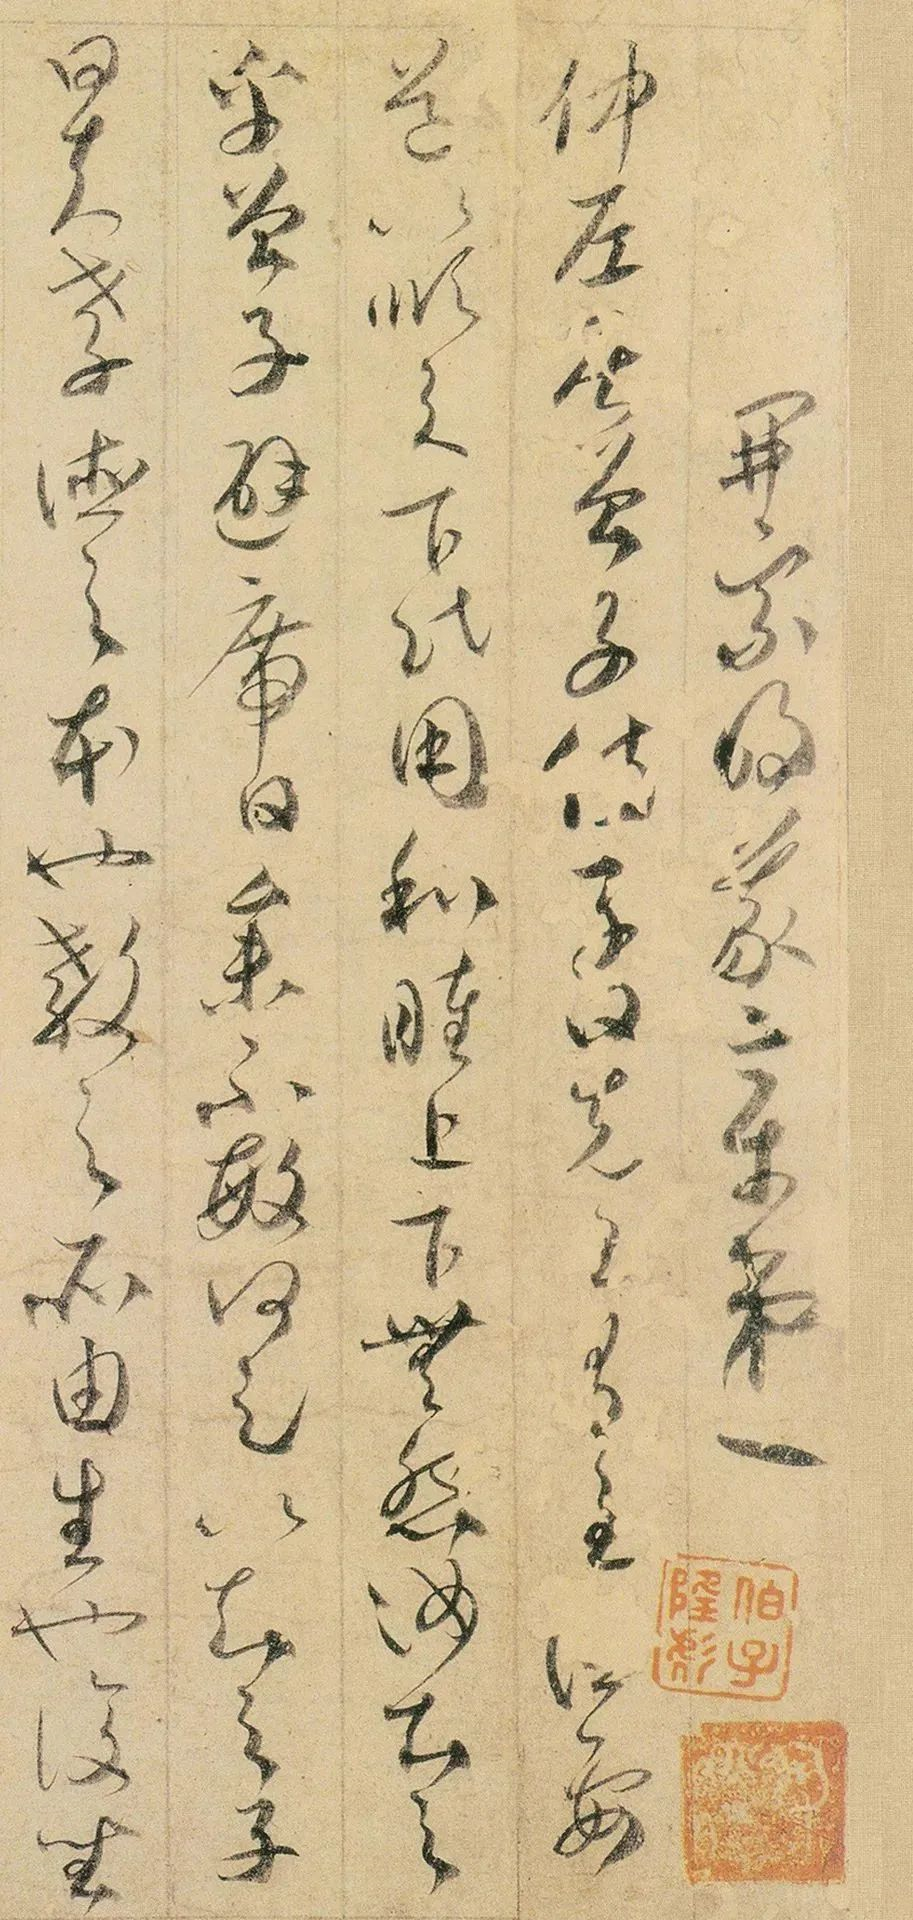 開宗明義章第一
仲尼居曾子侍子曰先王有至德要
道以順天下民用和睦上下無怨汝知之
乎曾子避席曰參不敏何足以知之子
曰夫孝德之本也教之所由生也復坐